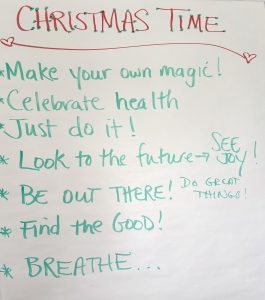 CHRISTMAS TIME
* Make your own magic!
* Celebrate health
* Just do it!
* Look to the future → SEE JOY!
* BE OUT THERE! DO GREAT THINGS!
* Find the GOOD!
* BREATHE...